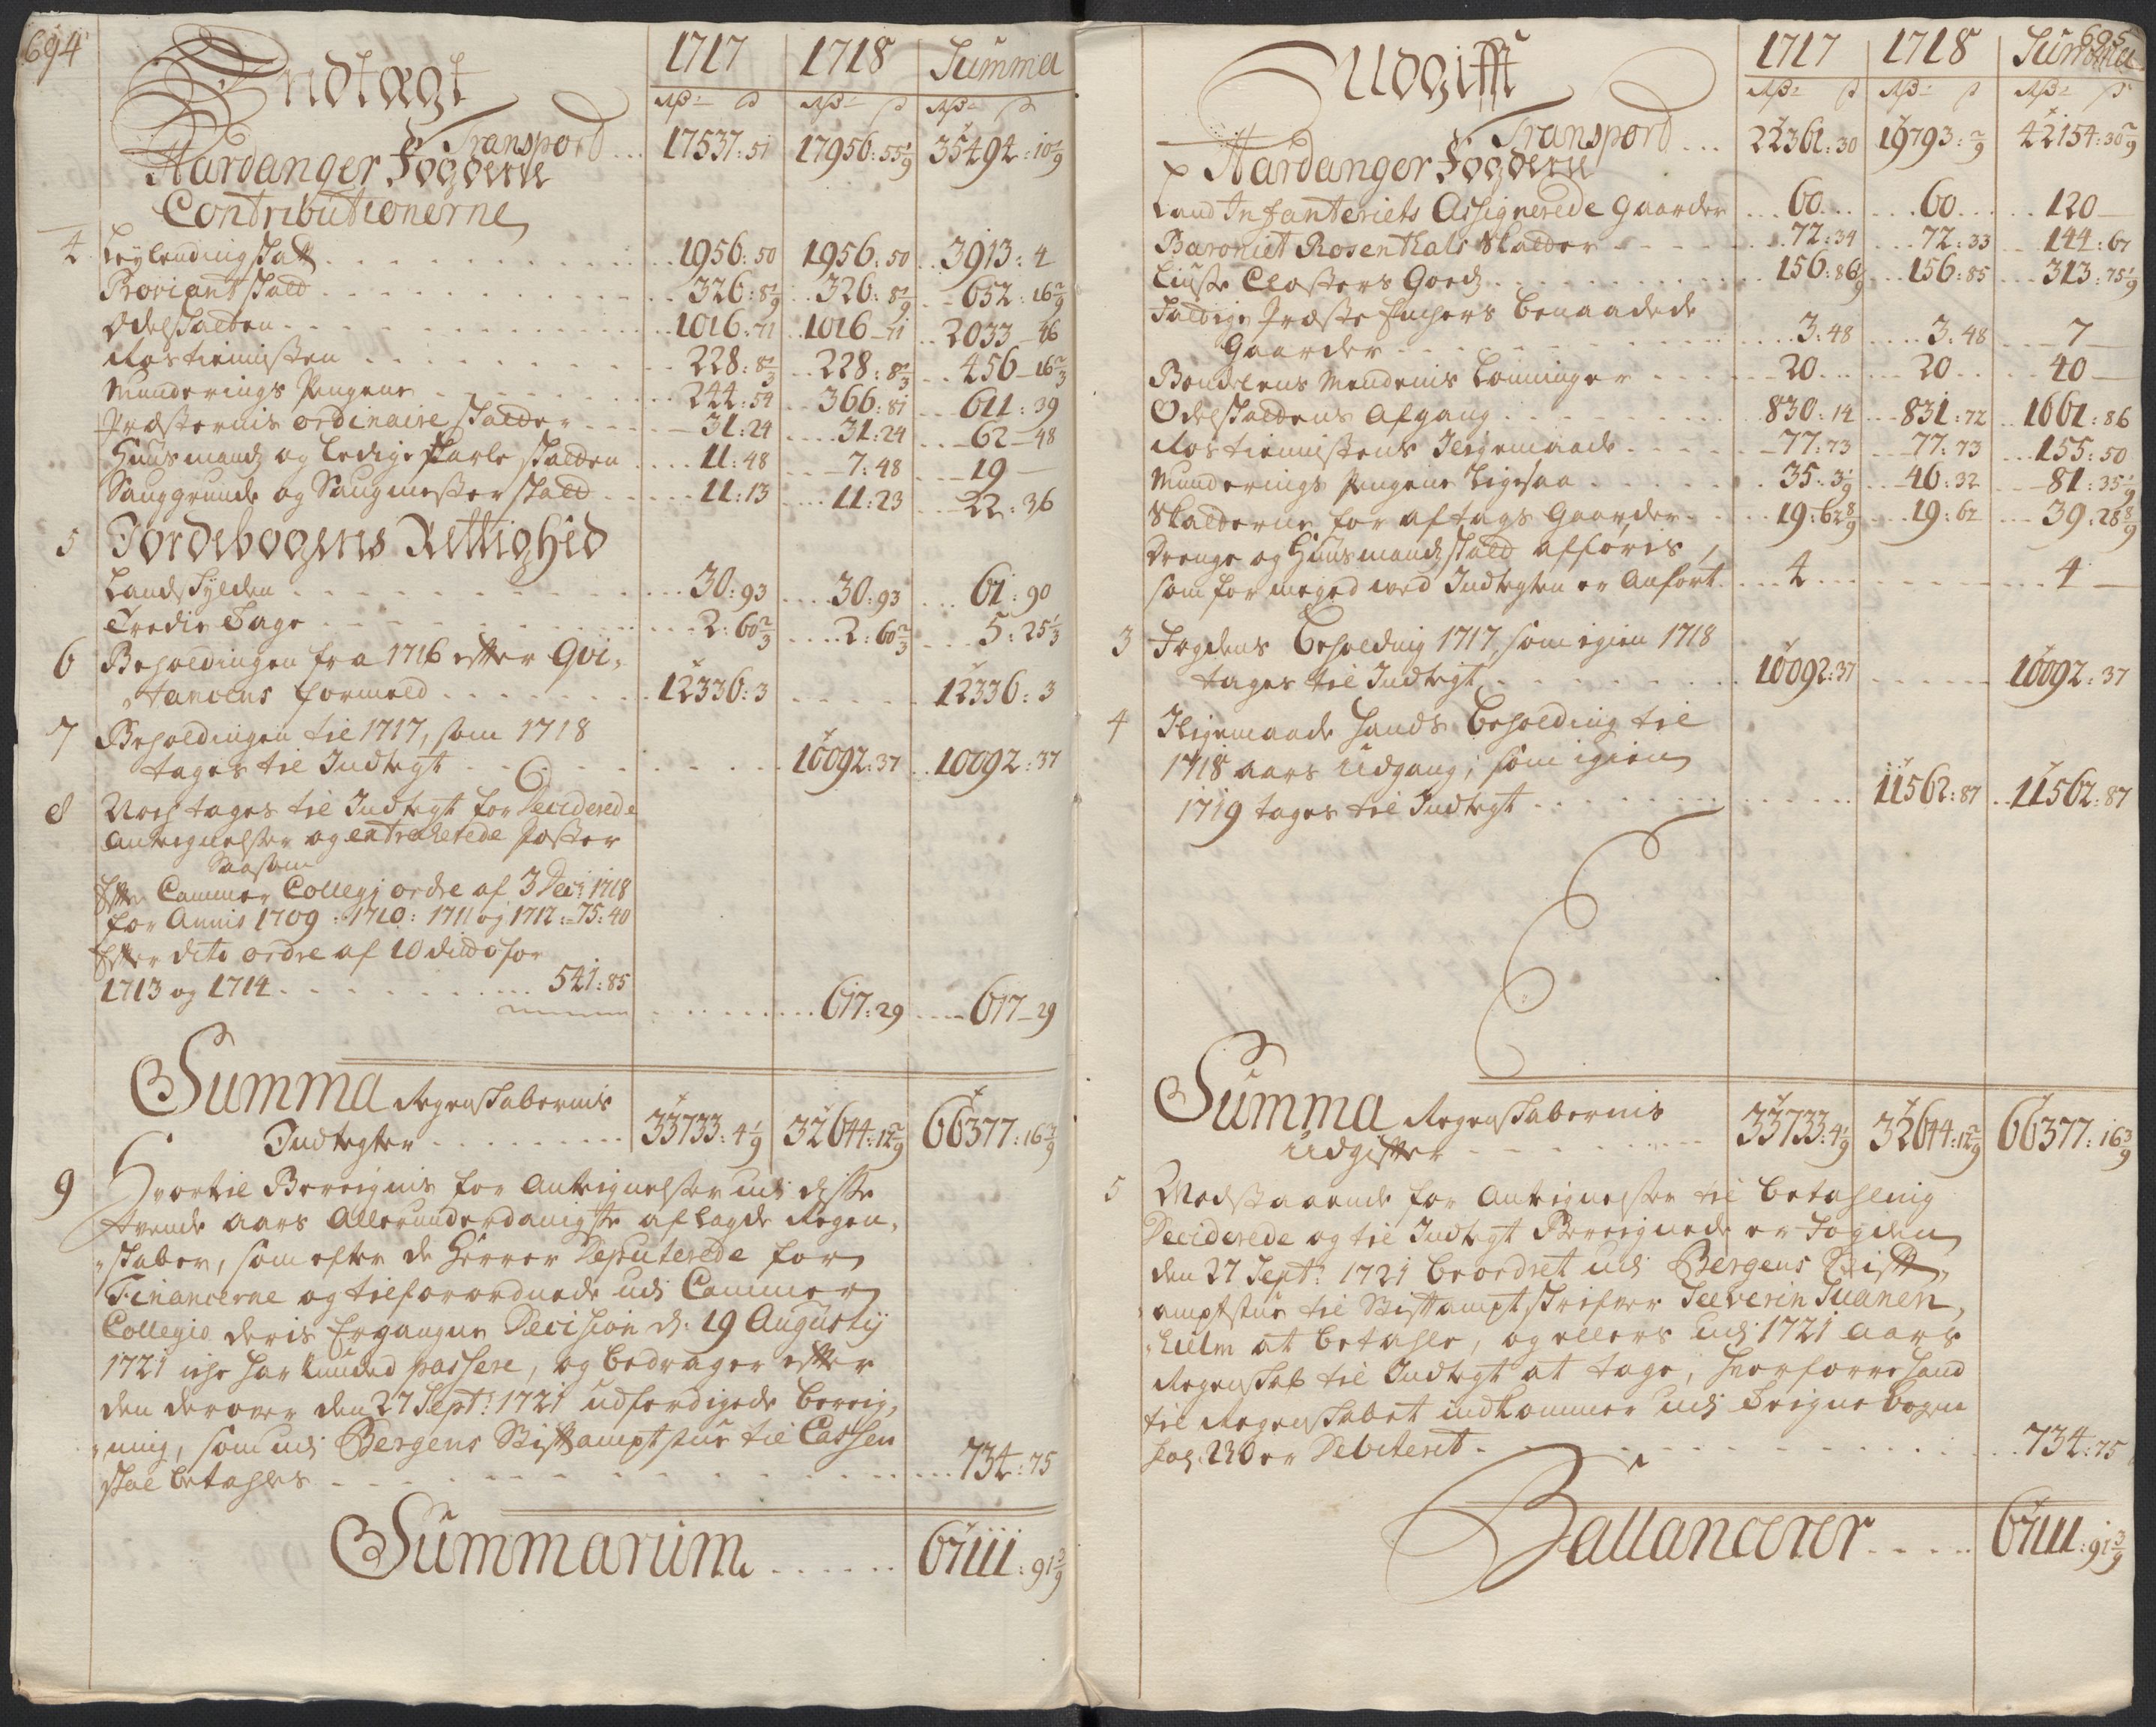 694
Indtægt
1717 1718 Summa
Rdr ß Rdr ß Rdr ß
Transport ... 17537:51 17956:55 1/9 35494:10 1/9
Hardanger Fogderie
Contributionerne
4 Leylendingskatt 1956:50 1956:50 3913:4
Proviantskatt 326:8 1/9 326:8 1/9 652:16 2/9
Odelskatten 1016:71 1016-71 2033-46
Rostienisten 228:8 1/3 228:8 1/3 456-16 2/3
Munderings Pengene 244:54 366:81 611:39
Præsternis ordinaire skatter 31:24 31:24 62-48
Huusmænds og Ledige Karle skatten 11:48 7:48 19
Sauggrunde og Saugmesterskatt 11:13 11:23 22:36
5 Jordebogens Rettighed
Landskylden 30:93 30:93 61:90
Tredie Tage 2:60 2/3 2:60 2/3 5:25 1/3
6 Beholdingen fra 1716 efter Qvi-
tancens formeld 12336:3 12336:3
7 Beholdingen til 1717, som 1718
tages til Indtegt 10092:37 10092:37
8 Noch tages til Indtegt for Deciderede
Antegnelser og extraherede Poster
Saasom
Efter Cammer Collegij ordre af 3 Decr 1718
for Annis 1709: 1710: 1711 og 1712:- 75:40
Efter dito ordre af 10 dito for
1713 og 1714 541:85
617:29 617-29
Summa Regenskabernis
Indtegter 33733:4 1/9 32644:12 2/9 66377:16 3/9
9 Hvortil Beregnis for Antegnelser udi disse
tvende aars Allerunderdanigste aflagde Regen-
skaber, som efter de Herrer Deputerede for
Financerne og tilforordnede udi Cammer
Collegio deris Ergangne Decision d: 19 Augustij
1721 iche har kunded passere, og bedrager efter
den derover den 27 Sept: 1721 udferdigede bereig-
ning, som udi Bergens Stiftamptstue til Cassen
skal betahles 734:75
Summarum 67111:91 3/9
695
Udgifft
1717 1718 Summa
Rdr ß Rdr ß Rdr ß
Transport ... 22361:30 19793:2/9 42154:30 2/9
Hardanger Fogderie
Land Infanteriets Assignerede gaarder 60 60 120
Baroniet Rosenthals Skatter 72:34 72:33 144:67
Liuse Closters Goeds 156:86 1/9 156:85 313:75 1/9
Saldige Præste Enchers benaadede
Gaarder 3:48 3:48 7
Bondelens Mendenis Lønninger 20 20 40
Odelskattens Afgang 830:14 831:72 1661:86
Rostienistens Iligemaade 77:73 77:73 155:50
Munderings Pengene Ligesaa 35:3 1/9 46:32 81:35 1/9
Skatterne for aftags Gaarder 19:62 8/9 19:62 39:28 8/9
Drenge og Huusmandskatt afføris,
som for meged ved Indtegten er Anført 4 4
3 Fogdens beholdnig 1717, som igien 1718
tages til Indtegt 10092:37 10092:37
4 Iligemaade hands beholding til
1718 aars Udgang, som igien
1719 tages til Indtegt 11562:87 11562:87
Summa Regenskabernis
Udgifter 33733:4 1/9 32644:12 2/9 66377:16 3/9
5 Modstaaende for Antegnelser til betahlnig
Deciderede og til Indtegt Bereignede er Fogden
den 27 Sept: 1721 beordret udi Bergens Stift-
amptstue til Stiftamptskrifver Severin Suanen-
hielm at betahle, og ellers udi 1721 Aars
Regenskab til Indtegt at tage, hvorforre hand
til Regenskabet indkommer udi Teignebogen
Fol: 230 er Debiteret 734:75
Ballancerer 67111:91 3/9